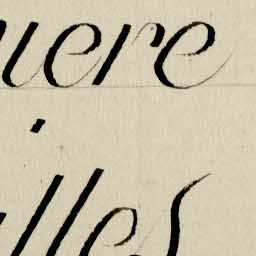 uere
illes